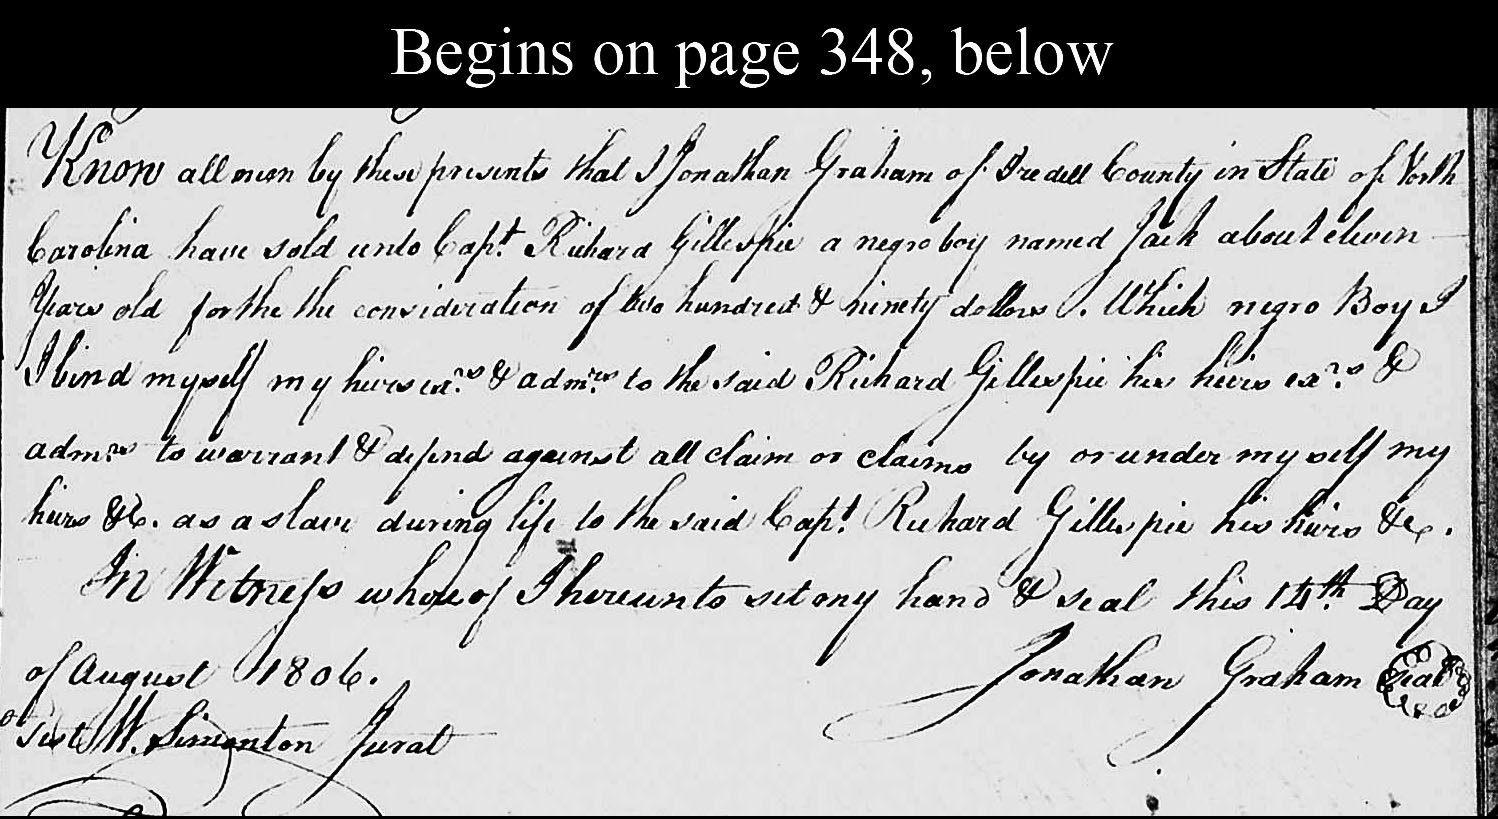 Begins on page 348, below
Know all men by these presents that I Jonathan Graham of Iredell County in State of North
Carolina have sold unto Capt. Richard Gillespie a negro boy named Jack about eleven
Years old for the the consideration of two hundred & ninety dollars. Which negro Boy I
I bind myself my heirs exrs. & admrs. to the said Richard Gillespie his heirs exrs. &
admrs to warrant & defend against all claim or claims by or under myself my
heirs &c. as a slave during life to the said Capt. Richard Gillespie his heirs &c.
In Witness whereof I hereunto set my hand & seal this 14th. Day
of August 1806. Jonathan Graham Seal
Test W. Simonton Jurat